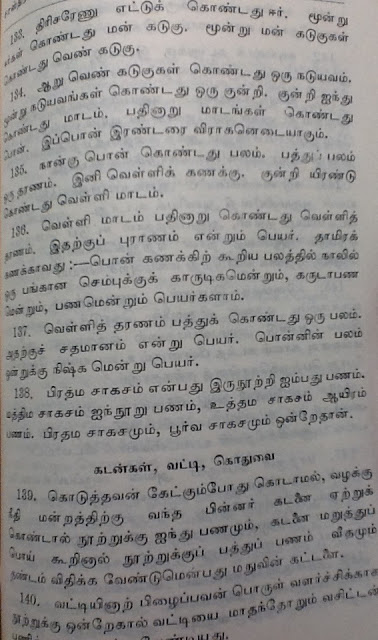 133. திரிசரேணு எட்டுக் கொண்டது ஈர். மூன்று
கொண்டது மன் கடுகு. மூன்று மன் கடுகுகள்
கொண்டது வெண் கடுகு.
134. ஆறு வெண் கடுகுகள் கொண்டது ஒரு நடுயவம்.
மூன்று நடுயவங்கள் கொண்டது ஒரு குன்றி. குன்றி ஐந்து
கொண்டது மாடம். பதினாறு மாடங்கள் கொண்டது
பொன். இப்பொன் இரண்டரை விராகனெடையாகும்.
135. நான்கு பொன் கொண்டது பலம். பத்துப் பலம்
ஒரு தரணம். இனி வெள்ளிக் கணக்கு. குன்றி யிரண்டு
கொண்டது வெள்ளி மாடம்.
136. வெள்ளி மாடம் பதினாறு கொண்டது வெள்ளித்
தரணம். இதற்குப் புராணம் என்றும் பெயர். தாமிரக்
கணக்காவது :—பொன் கணக்கிற் கூறிய பலத்தில் நாலில்
ஒரு பங்கான செம்புக்குக் காருடிகமென்றும், கருடாபண
மென்றும், பணமென்றும் பெயர்களாம்.
137. வெள்ளித் தரணம் பத்துக் கொண்டது ஒரு பலம்.
அதற்குச் சதமானம் என்று பெயர். பொன்னின் பலம்
ஒன்றுக்கு நிஷ்க மென்று பெயர்.
138. பிரதம சாகசம் என்பது இருநூற்றி ஐம்பது பணம்.
மத்திம சாகசம் ஐந்நூறு பணம், உத்தம சாகசம் ஆயிரம்
பணம். பிரதம சாகசமும், பூர்வ சாகசமும் ஒன்றேதான்.
கடன்கள், வட்டி, கொதுவை
139. கொடுத்தவன் கேட்கும்போது கொடாமல், வழக்கு
நீதி மன்றத்திற்கு வந்த பின்னர் கடனை ஏற்றுக்
கொண்டால் நூற்றுக்கு ஐந்து பணமும், கடனை மறுத்துப்
பொய் கூறினால் நூற்றுக்குப் பத்துப் பணம் வீதமும்
தண்டம் விதிக்க வேண்டுமென்பது மநுவின் கட்டளை.
140. வட்டியினாற் பிழைப்பவன் பொருள் வளர்ச்சிக்காக
நூற்றுக்கு ஒன்றேகால் வட்டியை மாதந்தோறும் வசிட்டன்